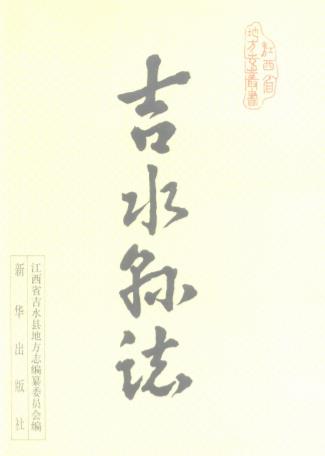 江西省
地方志叢書
吉水縣誌
江西省吉水县地方志编纂委员会编
新华出版社